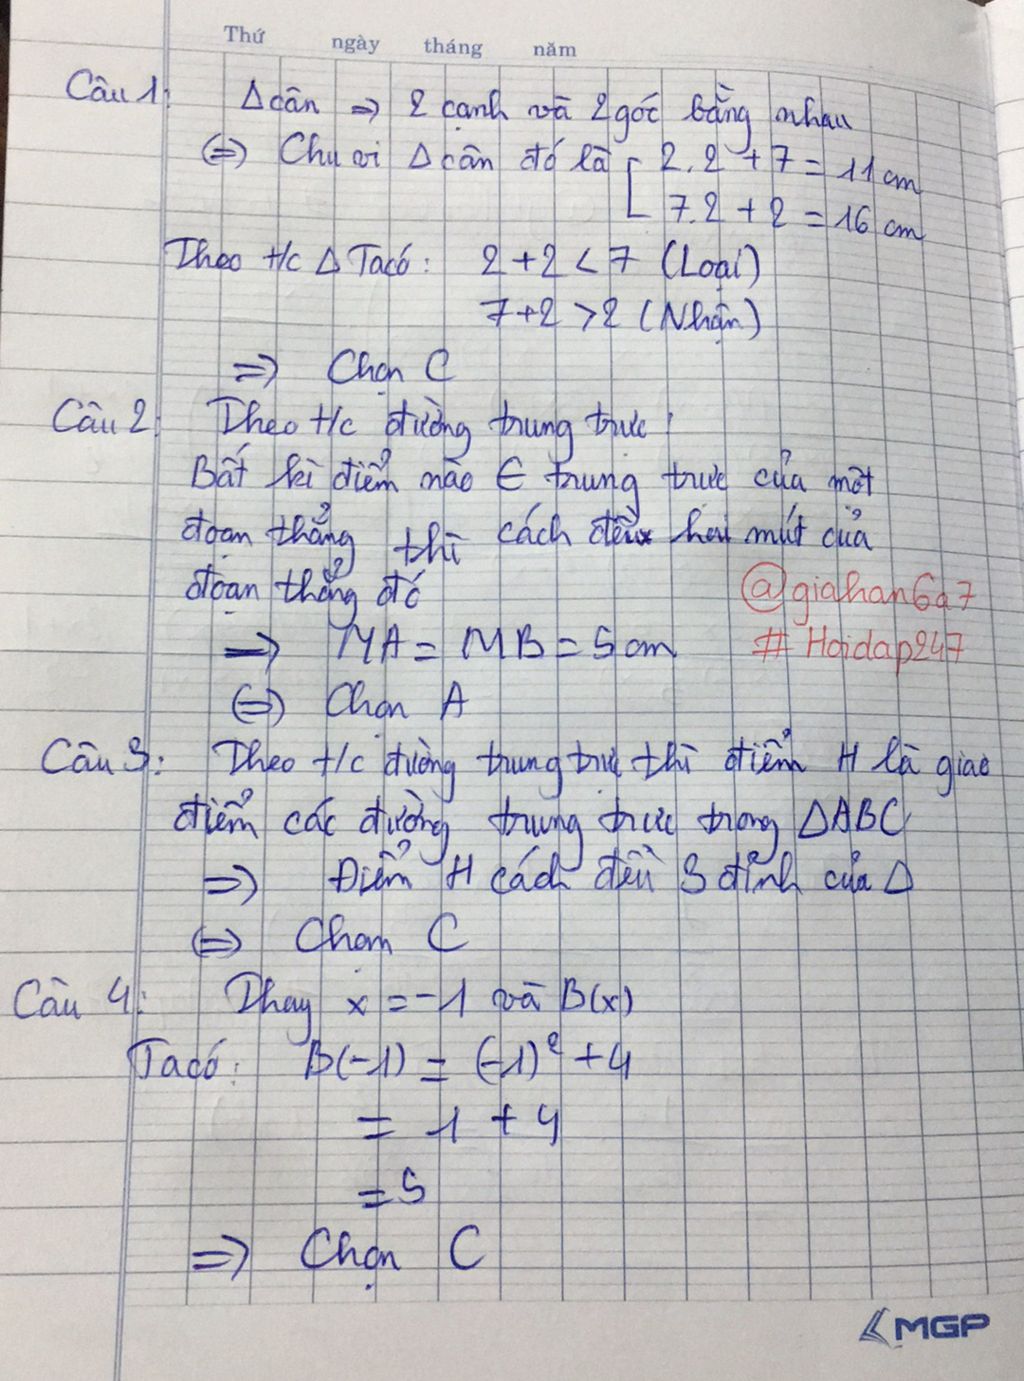 Thứ ngày tháng năm
Câu 1: Δ cân => 2 cạnh và 2 góc bằng nhau
(=) Chu vi Δ cân đó là [ 2.2 + 7 = 11 cm
7.2 + 2 = 16 cm
Theo t/c Δ Ta có: 2 + 2 < 7 (Loại)
7 + 2 > 2 (Nhận)
=> Chọn C
Câu 2: Theo t/c đường trung trực:
Bất kì điểm nào ∈ trung trực của một
đoạn thẳng thì cách đều hai mút của
đoạn thẳng đó
@giahan6a7
=> MA = MB = 5 cm
# Hoidap247
(=) Chọn A
Câu 3: Theo t/c đường trung trực thì điểm H là giao
điểm các đường trung trực trong ΔABC
=> Điểm H cách đều 3 đỉnh của Δ
(=) Chọn C
Câu 4: Thay x = -1 và B(x)
Ta có: B(-1) = (-1)² + 4
= 1 + 4
= 5
=> Chọn C
MGP